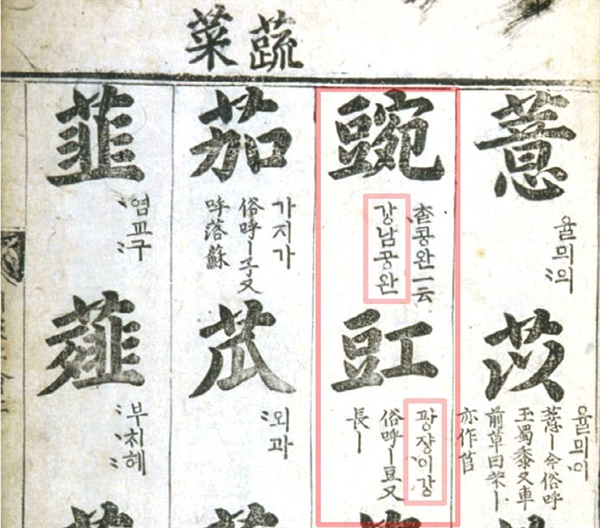 蔬菜
薏
율믜의
苡
율믜이
薏ー今俗呼
玉蜀黍又車
前草曰芣ー
亦作苢
豌
콩완一云
강남콩완
豇
광쟝이강
俗呼ー豆又
長ー
茄
가지가
俗呼ー子又
呼落蘇
苽
외과
韮
염교구
薤
부치혜